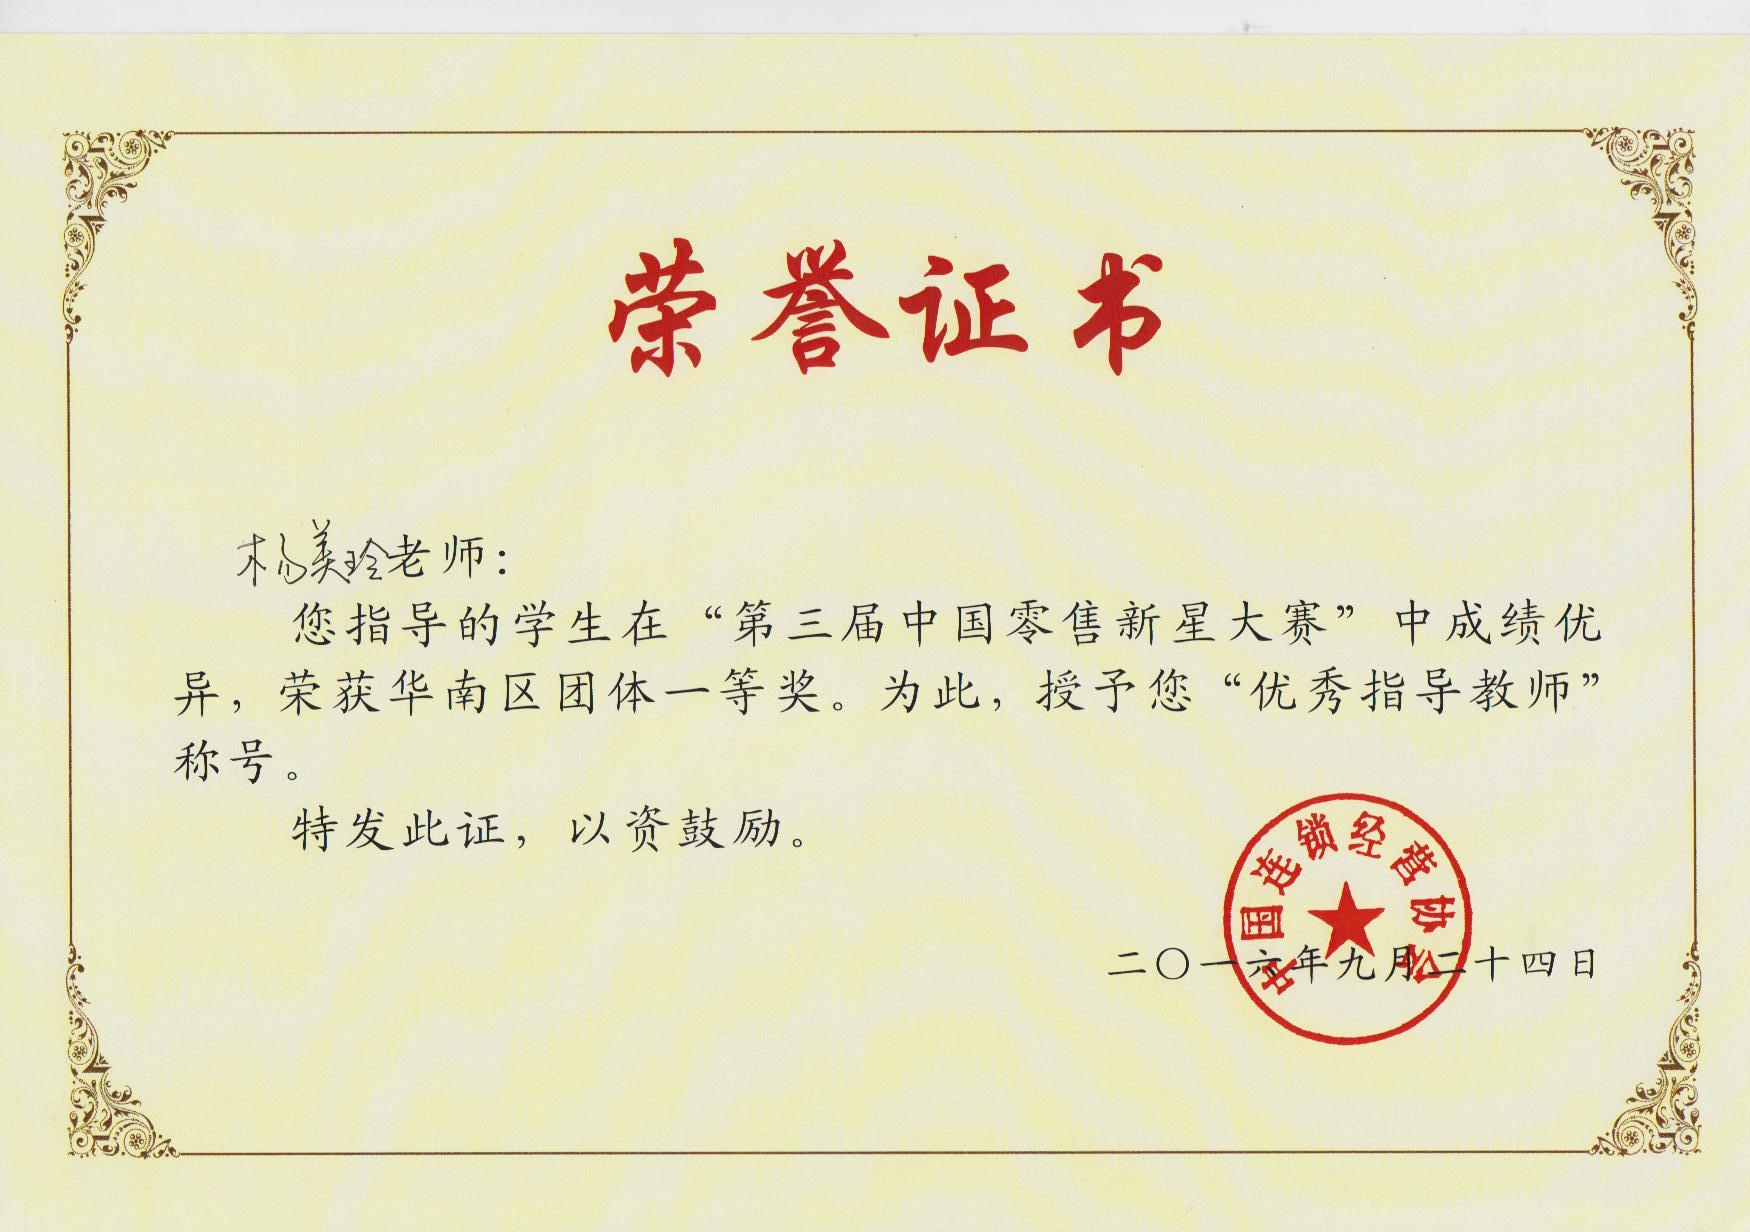 荣誉证书
杨美玲老师：
您指导的学生在“第三届中国零售新星大赛”中成绩优
异，荣获华南区团体一等奖。为此，授予您“优秀指导教师”
称号。
特发此证，以资鼓励。
中国连锁经营协会
二〇一六年九月二十四日